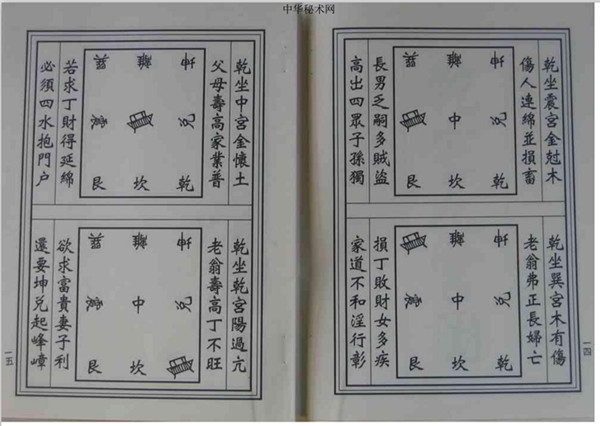 中华秘术网
乾坐震宮金尅木
傷人連綿並損畜
巽 離 坤
中 兌
艮 坎 乾
長男乏嗣多賊盜
高出四眾子孫獨
乾坐巽宮木有傷
老翁弗正長婦亡
離 坤
震 中 兌
艮 坎 乾
損丁敗財女多疾
家道不和淫行彰
一四
乾坐中宮金懷土
父母壽高家業普
巽 離 坤
震 兌
艮 坎 乾
若求丁財得延綿
必須四水抱門户
乾坐乾宮陽過亢
老翁壽高丁不旺
巽 離 坤
震 中 兌
艮 坎
欲求富貴妻子利
還要坤兌起峰嶂
一五